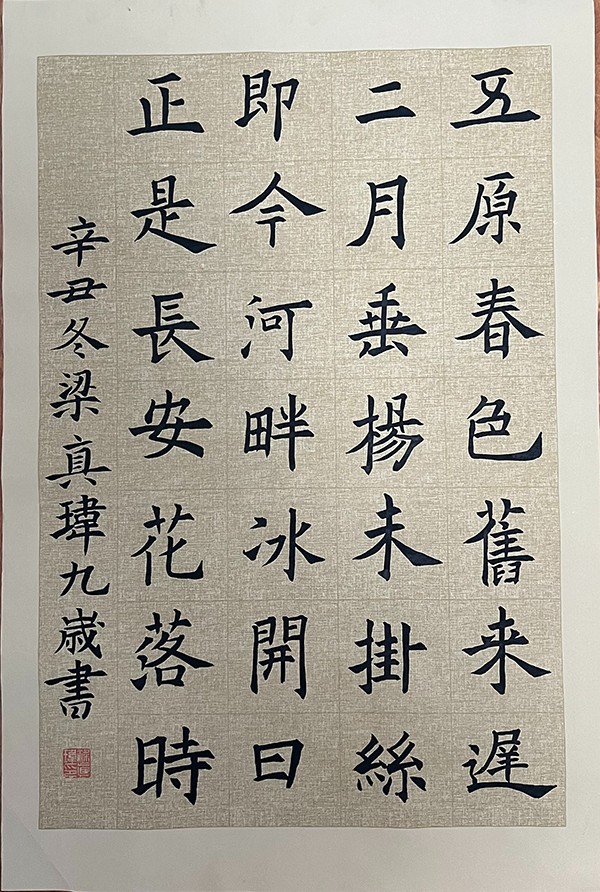 五原春色舊来遲
二月垂楊未掛絲
即今河畔冰開日
正是長安花落時
辛丑冬梁真瑋九歲書